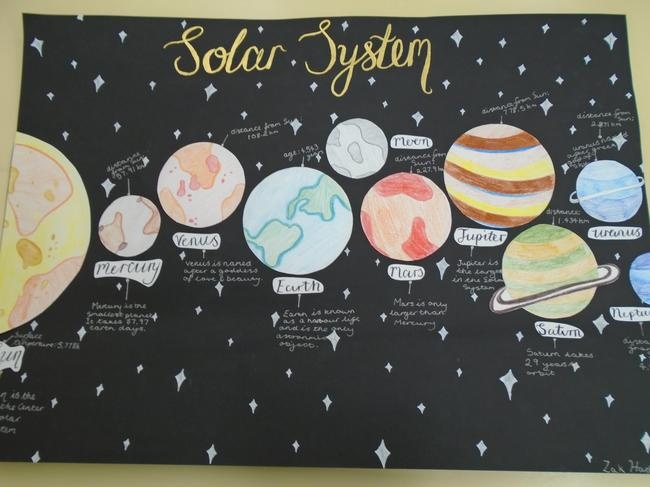 Solar System
distance from Sun:
57.91 km
distance from Sun:
108.2 km
age: 4.543
Moon
distance from Sun:
227.9 km
distance from Sun:
778.5 km
distance from Sun:
2.871 km
distance:
1.434 km
Mercury
Mercury is the
smallest planet
It takes 87.97
earth days.
Venus
Venus is named
after a goddess
of love & beauty.
Earth
Earth is known
as a harbour life
and is the only
astronomical
object.
Mars
Mars is only
larger than
Mercury
Jupiter
Jupiter is
the largest
in the Solar
System
Saturn
Saturn takes
29 years
orbit
Uranus
Neptu
un
Surface
n is the
the Center
olar
tem
Zak